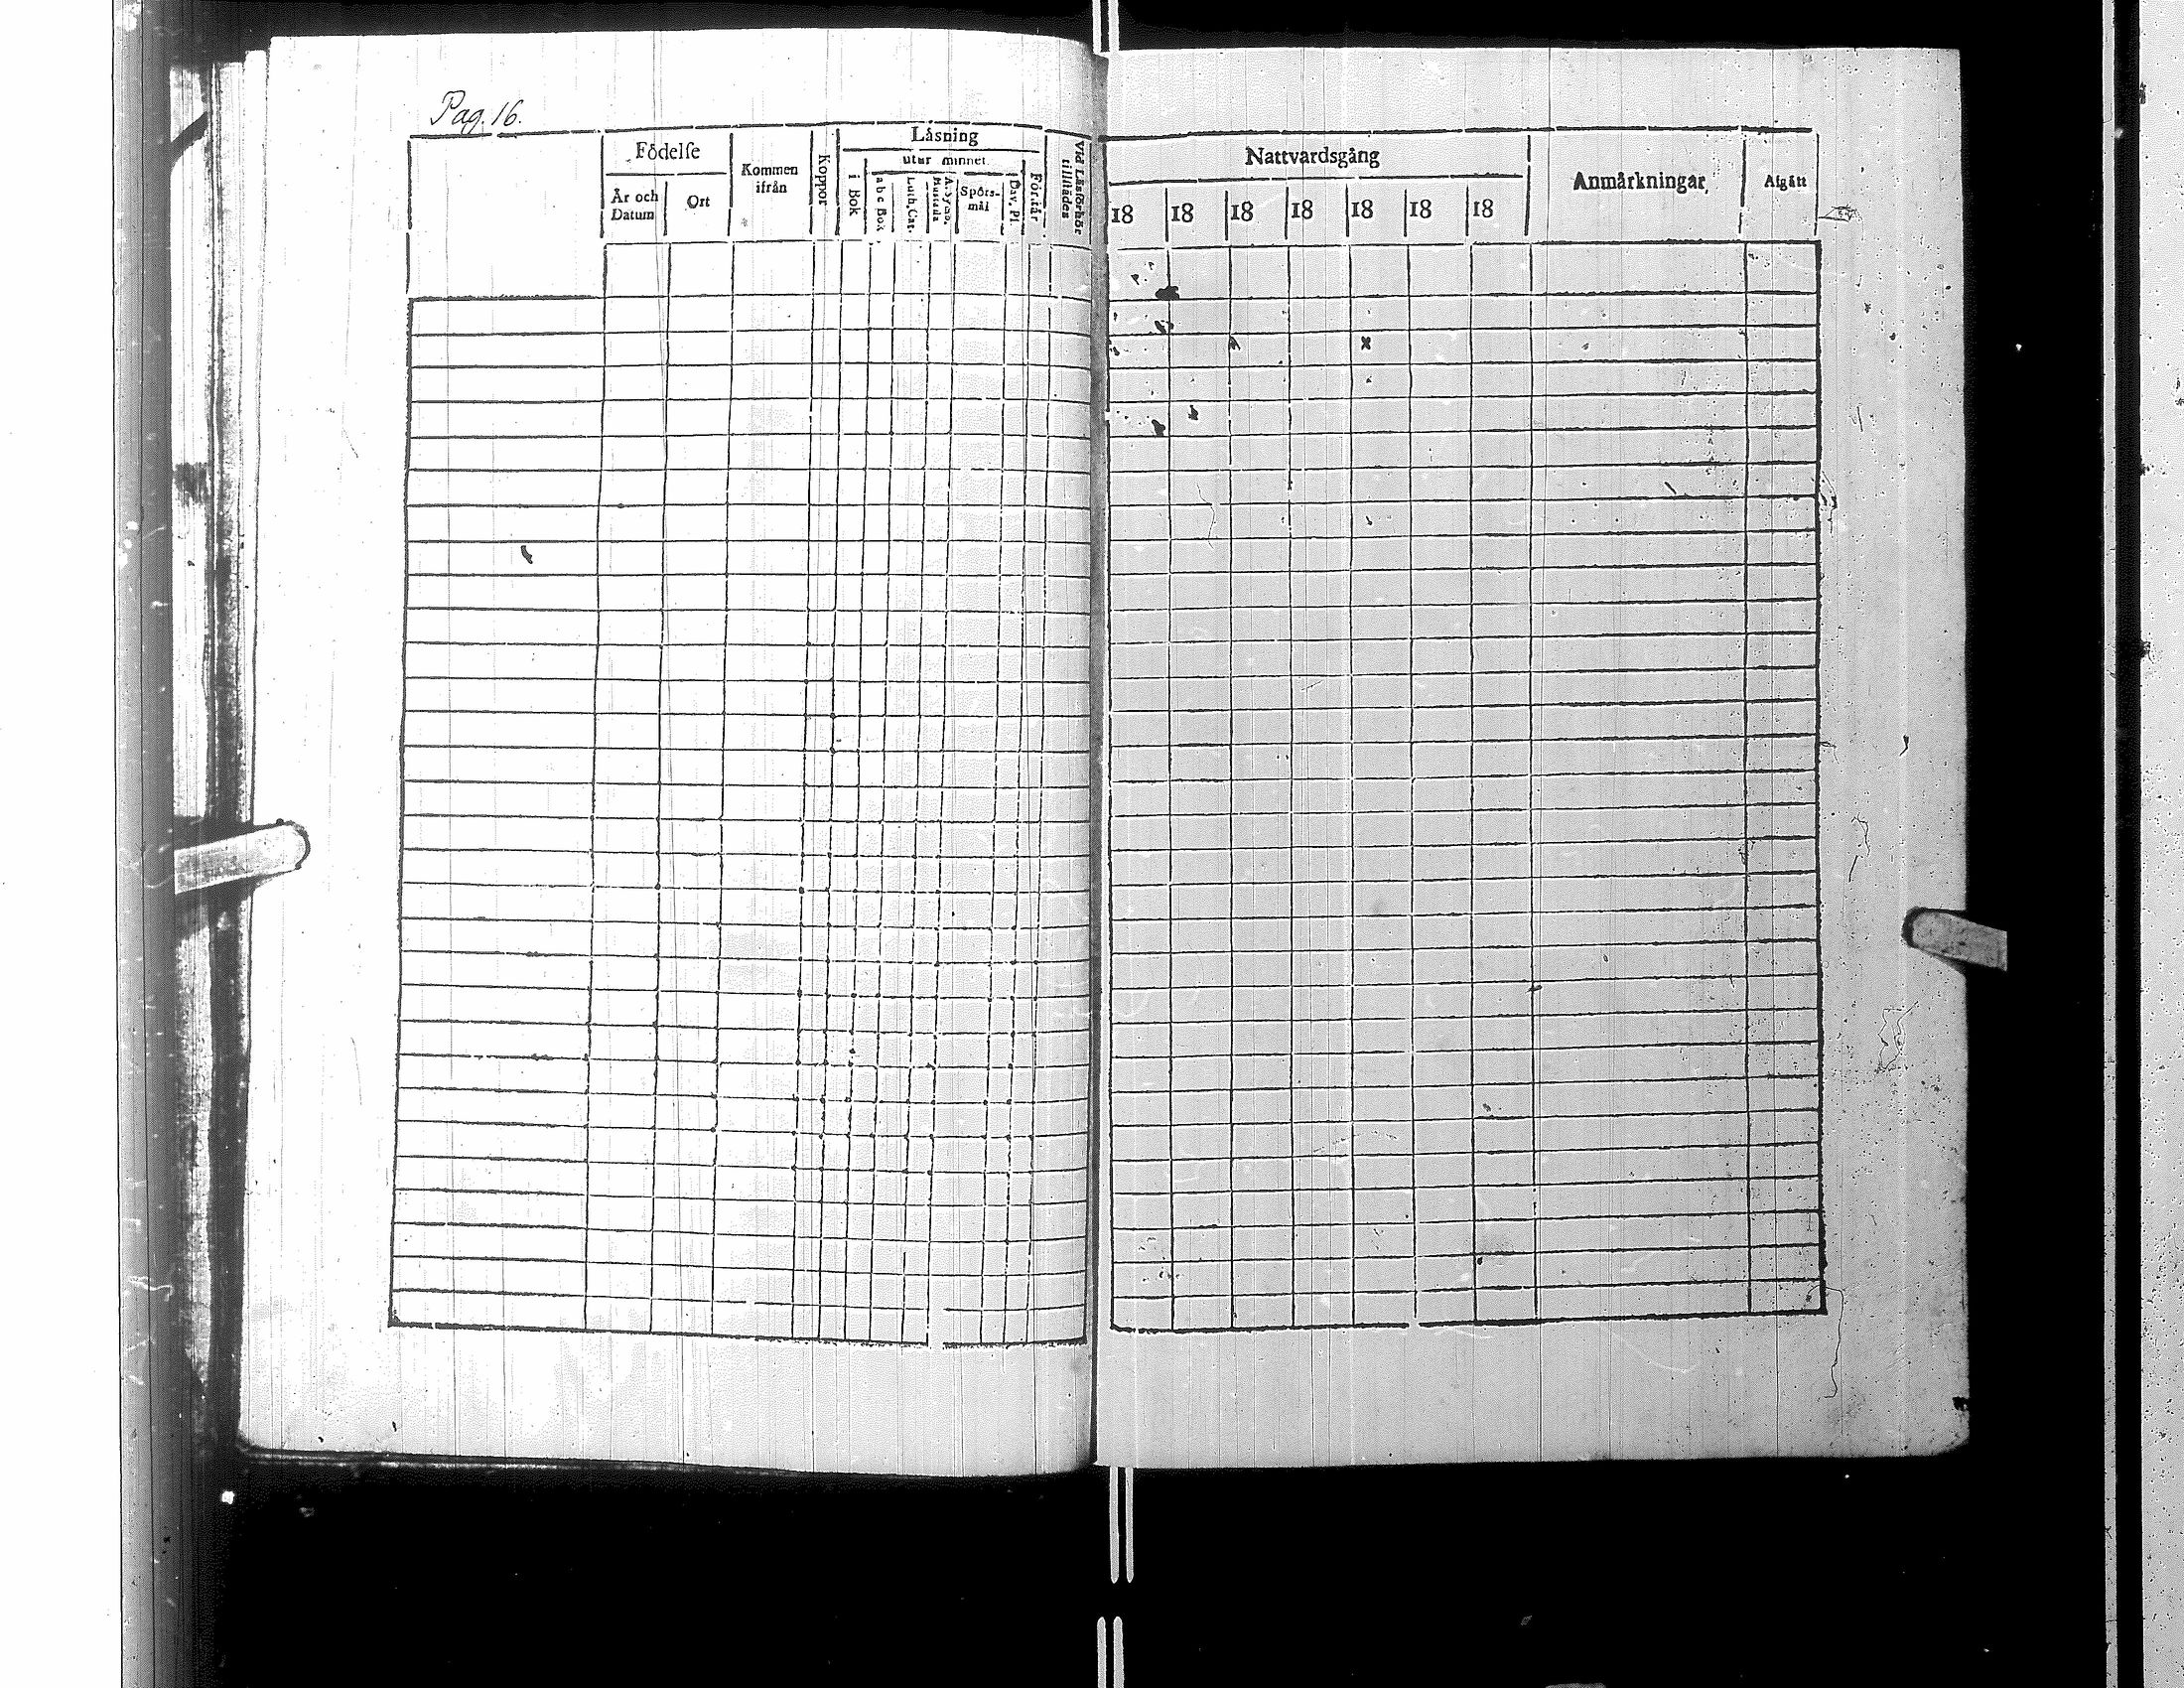 Pag. 16.
Födelse
År och Datum
Ort
Kommen ifrån
Koppor
Läsning
i Bok
utur minnet
a b c Bok
Luth. Cat.
Spörs-mål
Dav. Ps.
Förstår
Vid Läsförhör tillstädes
Nattvardsgång
18 18 18 18 18 18 18
Anmärkningar
Afgått